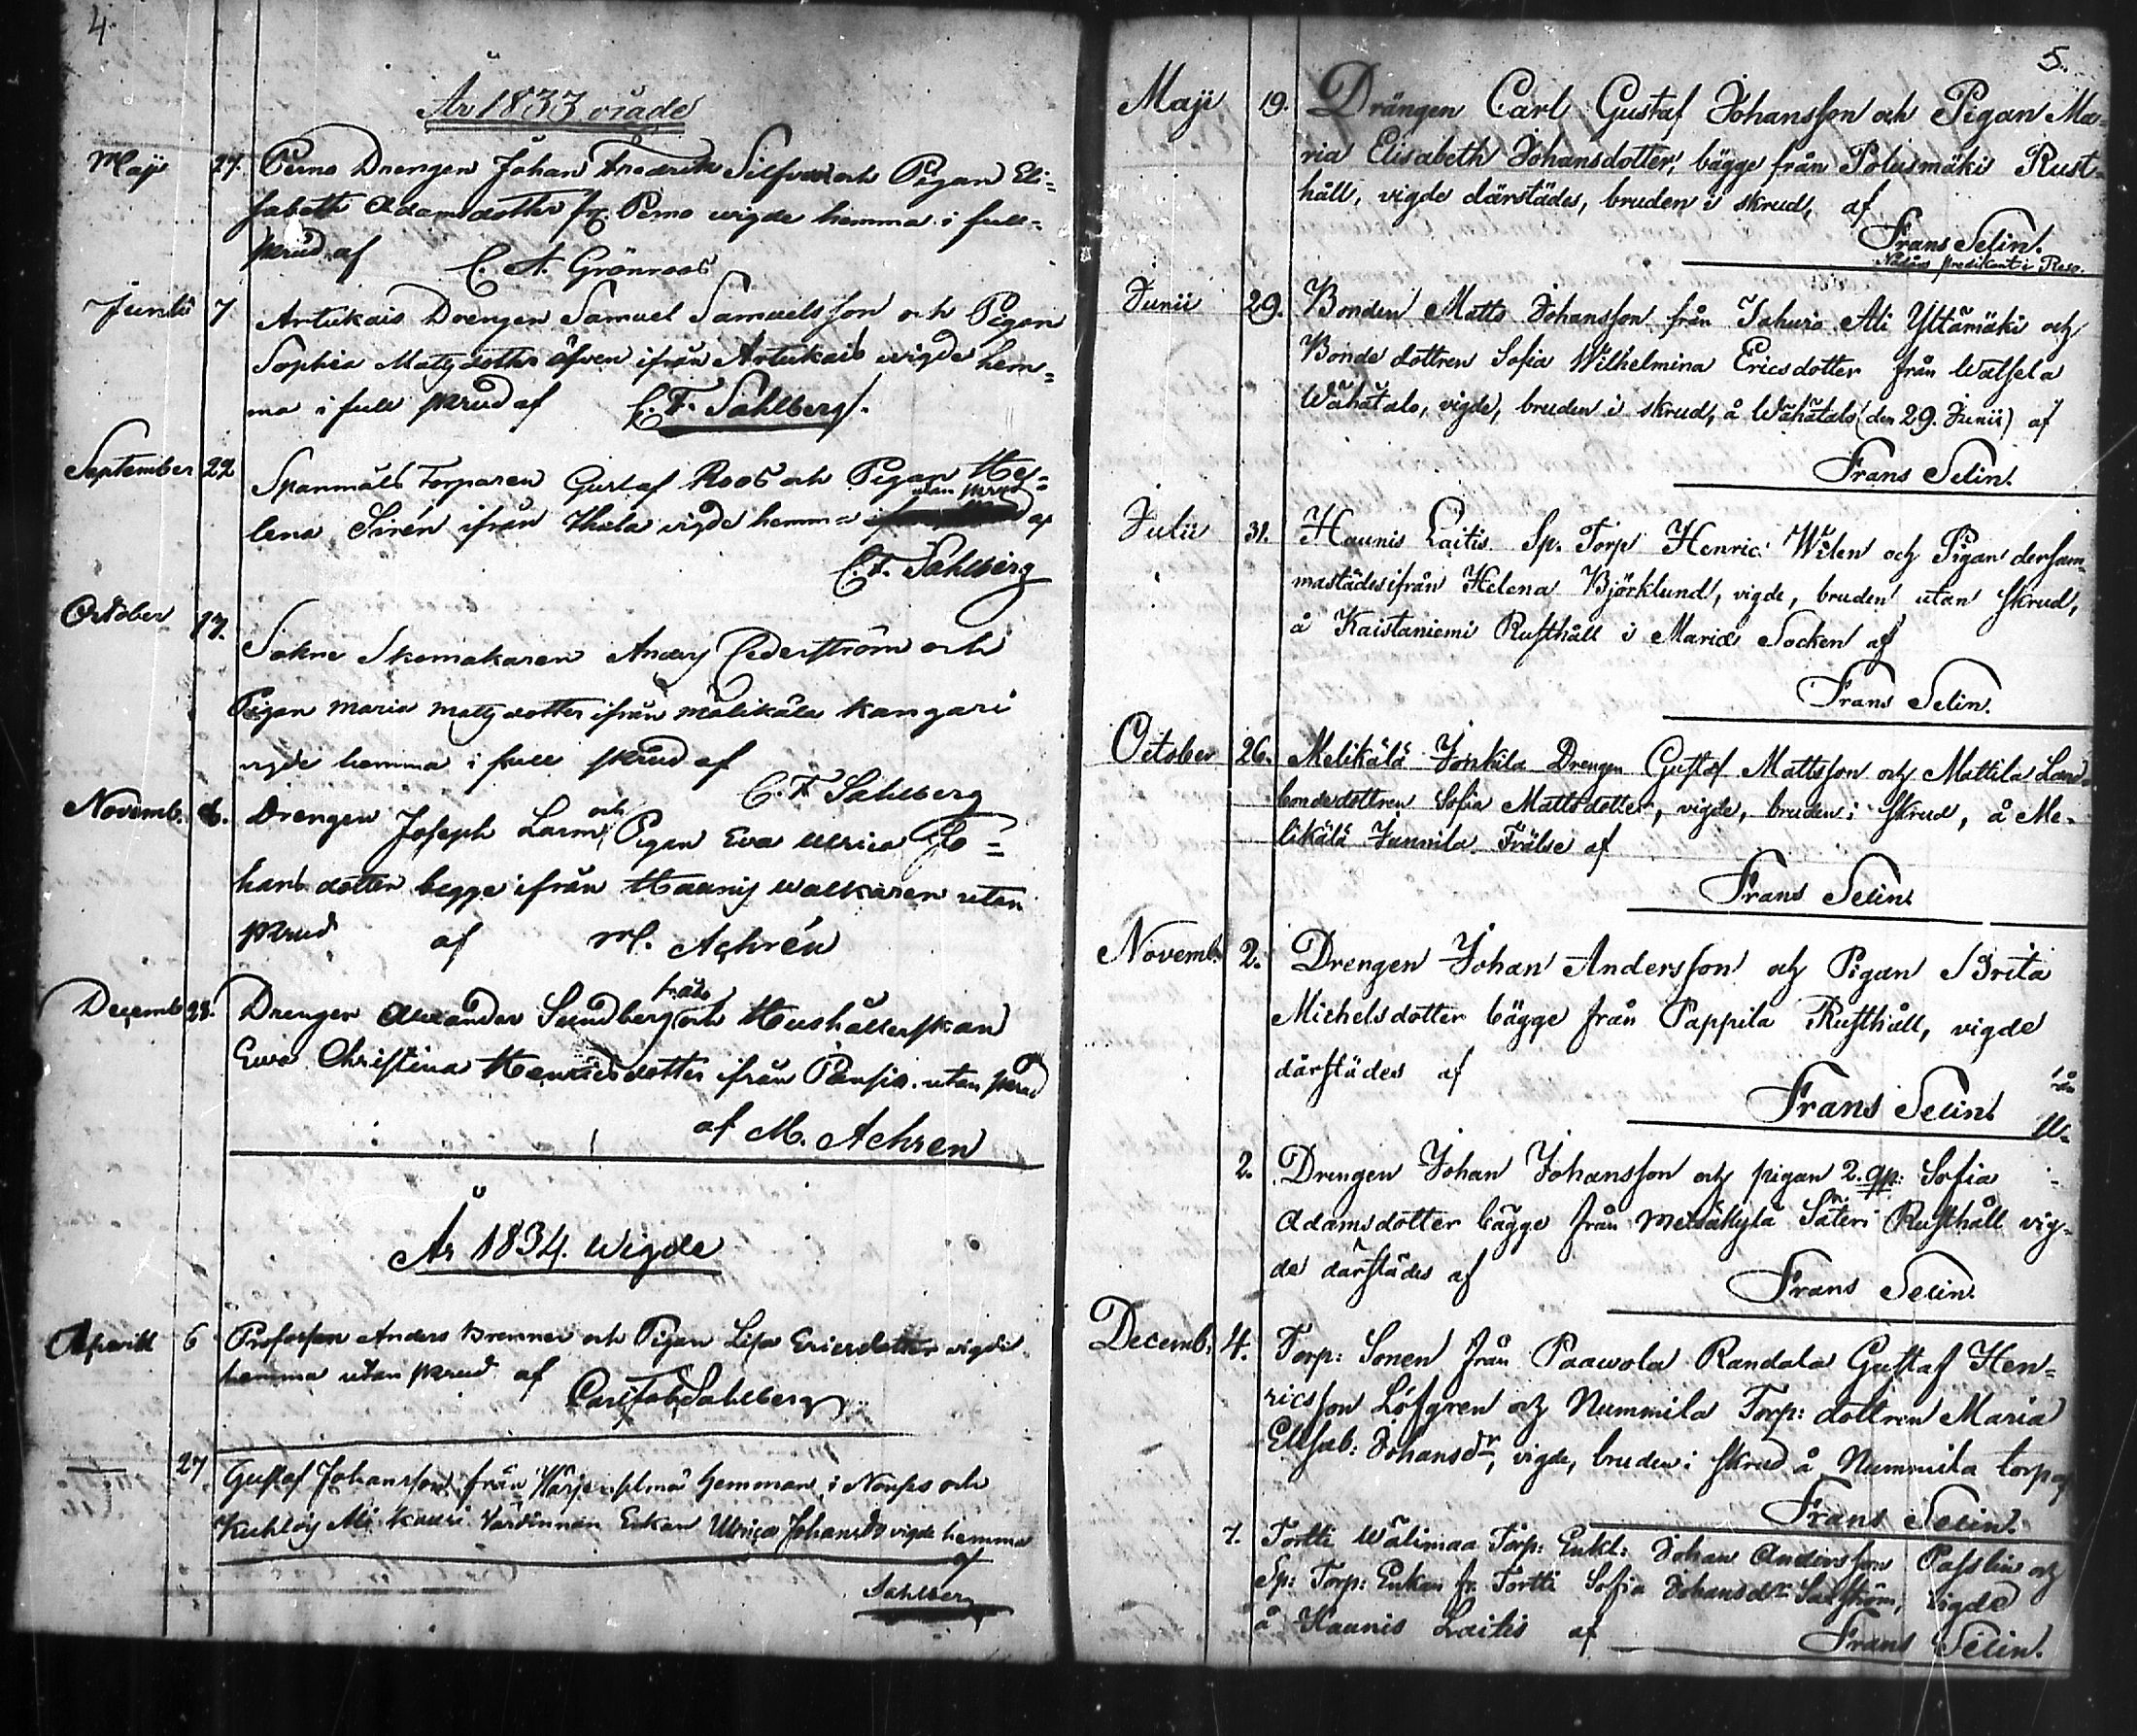 4.
År 1833 viade
Maji 27. Perno Drengen Johan Fredrik Silfver och Pigan Eli=
sabeth Adamsdotter fr. Perno wigde hemma i full=
skrud af C. A. Grönroos
Junii 7 Artukais Drengen Samuel Samuelsson och Pigan
Sophia Matsdotter äfven ifrån Artukais wigde hem=
ma i full skrud af C. F. Sahlberg.
September 22 Spanmåls Torparen Gustaf Roos och Pigan He=
lena Sirén ifrån Ihala vigde hemma utan skrud af
C. F. Sahlberg
October 17. Sokne Skomakaren Anders Cederström och
Pigan Maria Matsdotter ifrån Mälikälä Kangari
vigde hemma i full skrud af
C. F. Sahlberg
Novemb. 6. Drengen Joseph Larm och Pigan Eva Ulrica Jo=
hansdotter begge ifrån Haunis Walkaren utan
skrud af M. Achrén
Decemb 28. Drengen Alexander Sundberg från och Hushållerskan
Ewa Christina Henricsdotter ifrån Pansio utan skrud
af M. Achren
År 1834. Wigde
Aprill 6 Profossen Anders Brenner och Pigan Lisa Ericsdotter vigde
hemma utan skrud af Carl Fab Sahlberg
27 Gustaf Johansson från hemman i Nousis och
Kuhlois Ali Kauri Värdinnan Enkan Ulrica Johansdr vigde hemma
af
Sahlberg
5.
Maji 19. Drängen Carl Gustaf Johansson och Pigan Ma=
ria Elisabeth Johansdotter, bägge från Polusmäki Rust=
håll, vigde därstädes, bruden i skrud, af
Frans Selin.
Nådårs predikant i Reso.
Junii 29. Bonden Matts Johansson från Ali Yltämäki och
Bonde dottren Sofia Wilhelmina Ericsdotter från Watsela
Wähätalo, vigde, bruden i skrud, å Wähätalo (den 29. Junii) af
Frans Selin.
Julii 31. Haunis Laitis Sp. Torp Henric Wilen och Pigan dersam=
mastädes ifrån Helena Björklund, vigde, bruden utan skrud,
å Kaistaniemi Rusthåll i Mariæ Socken af
Frans Selin.
October 26. Melikälä Jonkila Drengen Gustaf Mattsson och Mattila Land=
bondedottren Sofia Mattsdotter, vigde, bruden i skrud, å Me=
likälä Junnila Frälse af
Frans Selin
Novemb. 2. Drengen Johan Andersson och Pigan Brita
Michelsdotter bägge från Pappila Rusthåll, vigde
därstädes af
Frans Selin.
2. Drengen Johan Johansson och pigan 2. gr: Sofia
Adamsdotter bägge från Metsäkylä Säteri Rusthåll vig=
de därstädes af
Frans Selin.
Decemb. 4. Torp: Sonen från Paawola Randala Gustaf Hen=
ricsson Löfgren och Nummila Torp: dottren Maria
Elisab: Johansdr, vigde, bruden i skrud å Nummila torp af
Frans Selin.
7. Tortti Wälimaa Torp: Enkl: Johan Andersson Passlin och
Sp: Torp: Enkan fr. Tortti Sofia Johansdr Salström, vigde
å Haunis Laitis af Frans Selin.